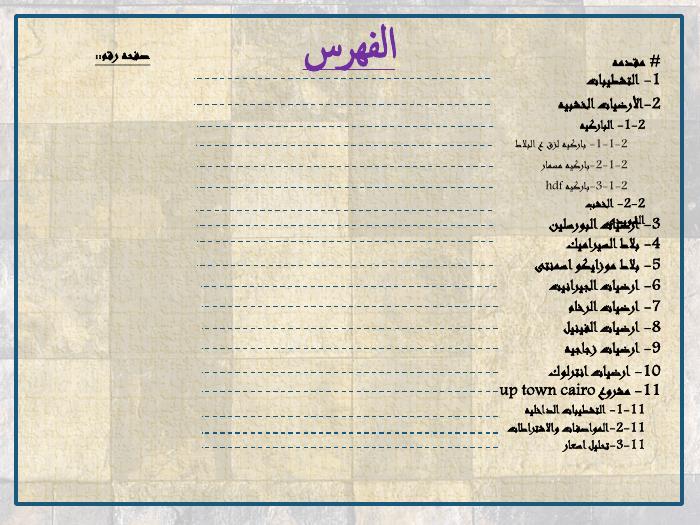 الفهرس
صفحه رقم::
# مقدمه
1- التشطيبات
2-الأرضيات الخشبيه
2-1- الباركيه
2-1-1- باركيه لزق ع البلاط
2-1-2-باركيه مسمار
2-1-3-باركيه hdf
2-2- الخشب
3- ارضيات البورسلين
4- بلاط السيراميك
5- بلاط موزايكو اسمنتى
6- ارضيات الجيرانيت
7- ارضيات الرخام
8- ارضيات الفينيل
9- ارضيات زجاجيه
10- ارضيات انترلوك
11- مشروع up town cairo
11-1- التشطيبات الداخليه
11-2-المواصفات والاشتراطات
11-3-تحليل اسعار